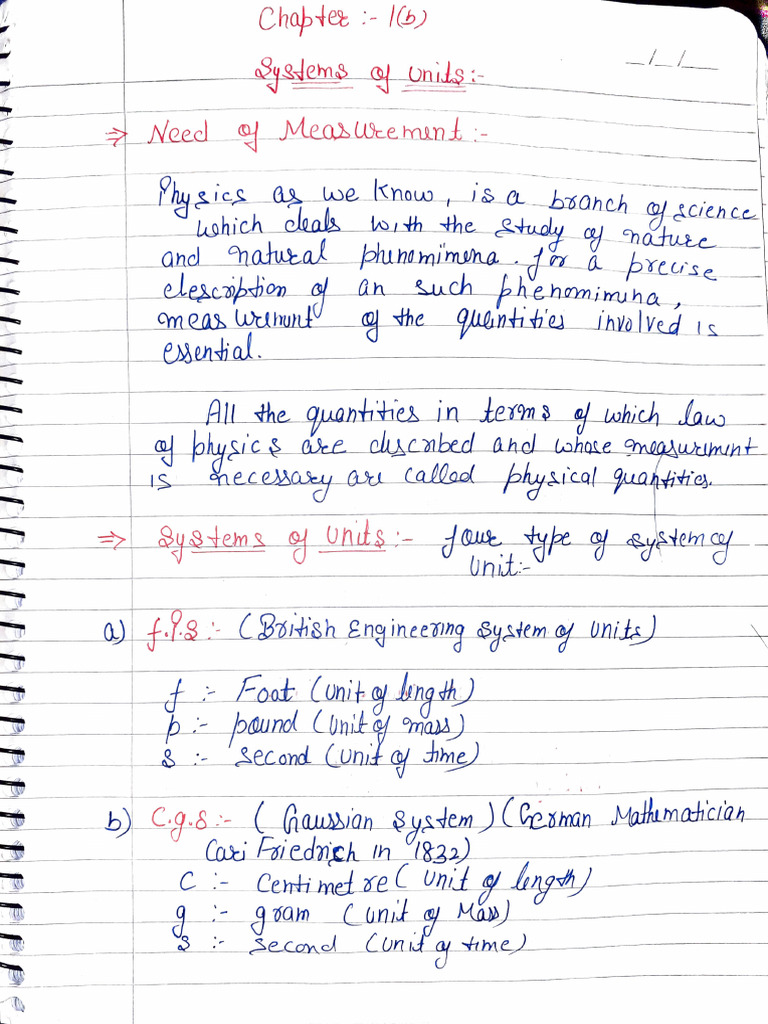 Chapter :- 1(b)
_/_/__
Systems of Units:-
⇒ Need of Measurement:-
Physics as we know, is a branch of science
which deals with the study of nature
and natural phenomimena. for a precise
description of an such phenomimina,
measurement of the quantities involved is
essential.
All the quantities in terms of which law
of physics are described and whose measurement
is necessary are called physical quantities.
⇒ Systems of Units:- four type of system of
Unit:-
a) f.P.S :- (British Engineering System of Units)
f :- Foot (Unit of length)
p :- pound (Unit of mass)
s :- second (Unit of time)
b) C.g.S :- (Gaussian System) (German Mathematician
Cari Friedrich in 1832)
C :- Centimetre (Unit of length)
g :- gram (Unit of Mass)
s :- second (Unit of time)